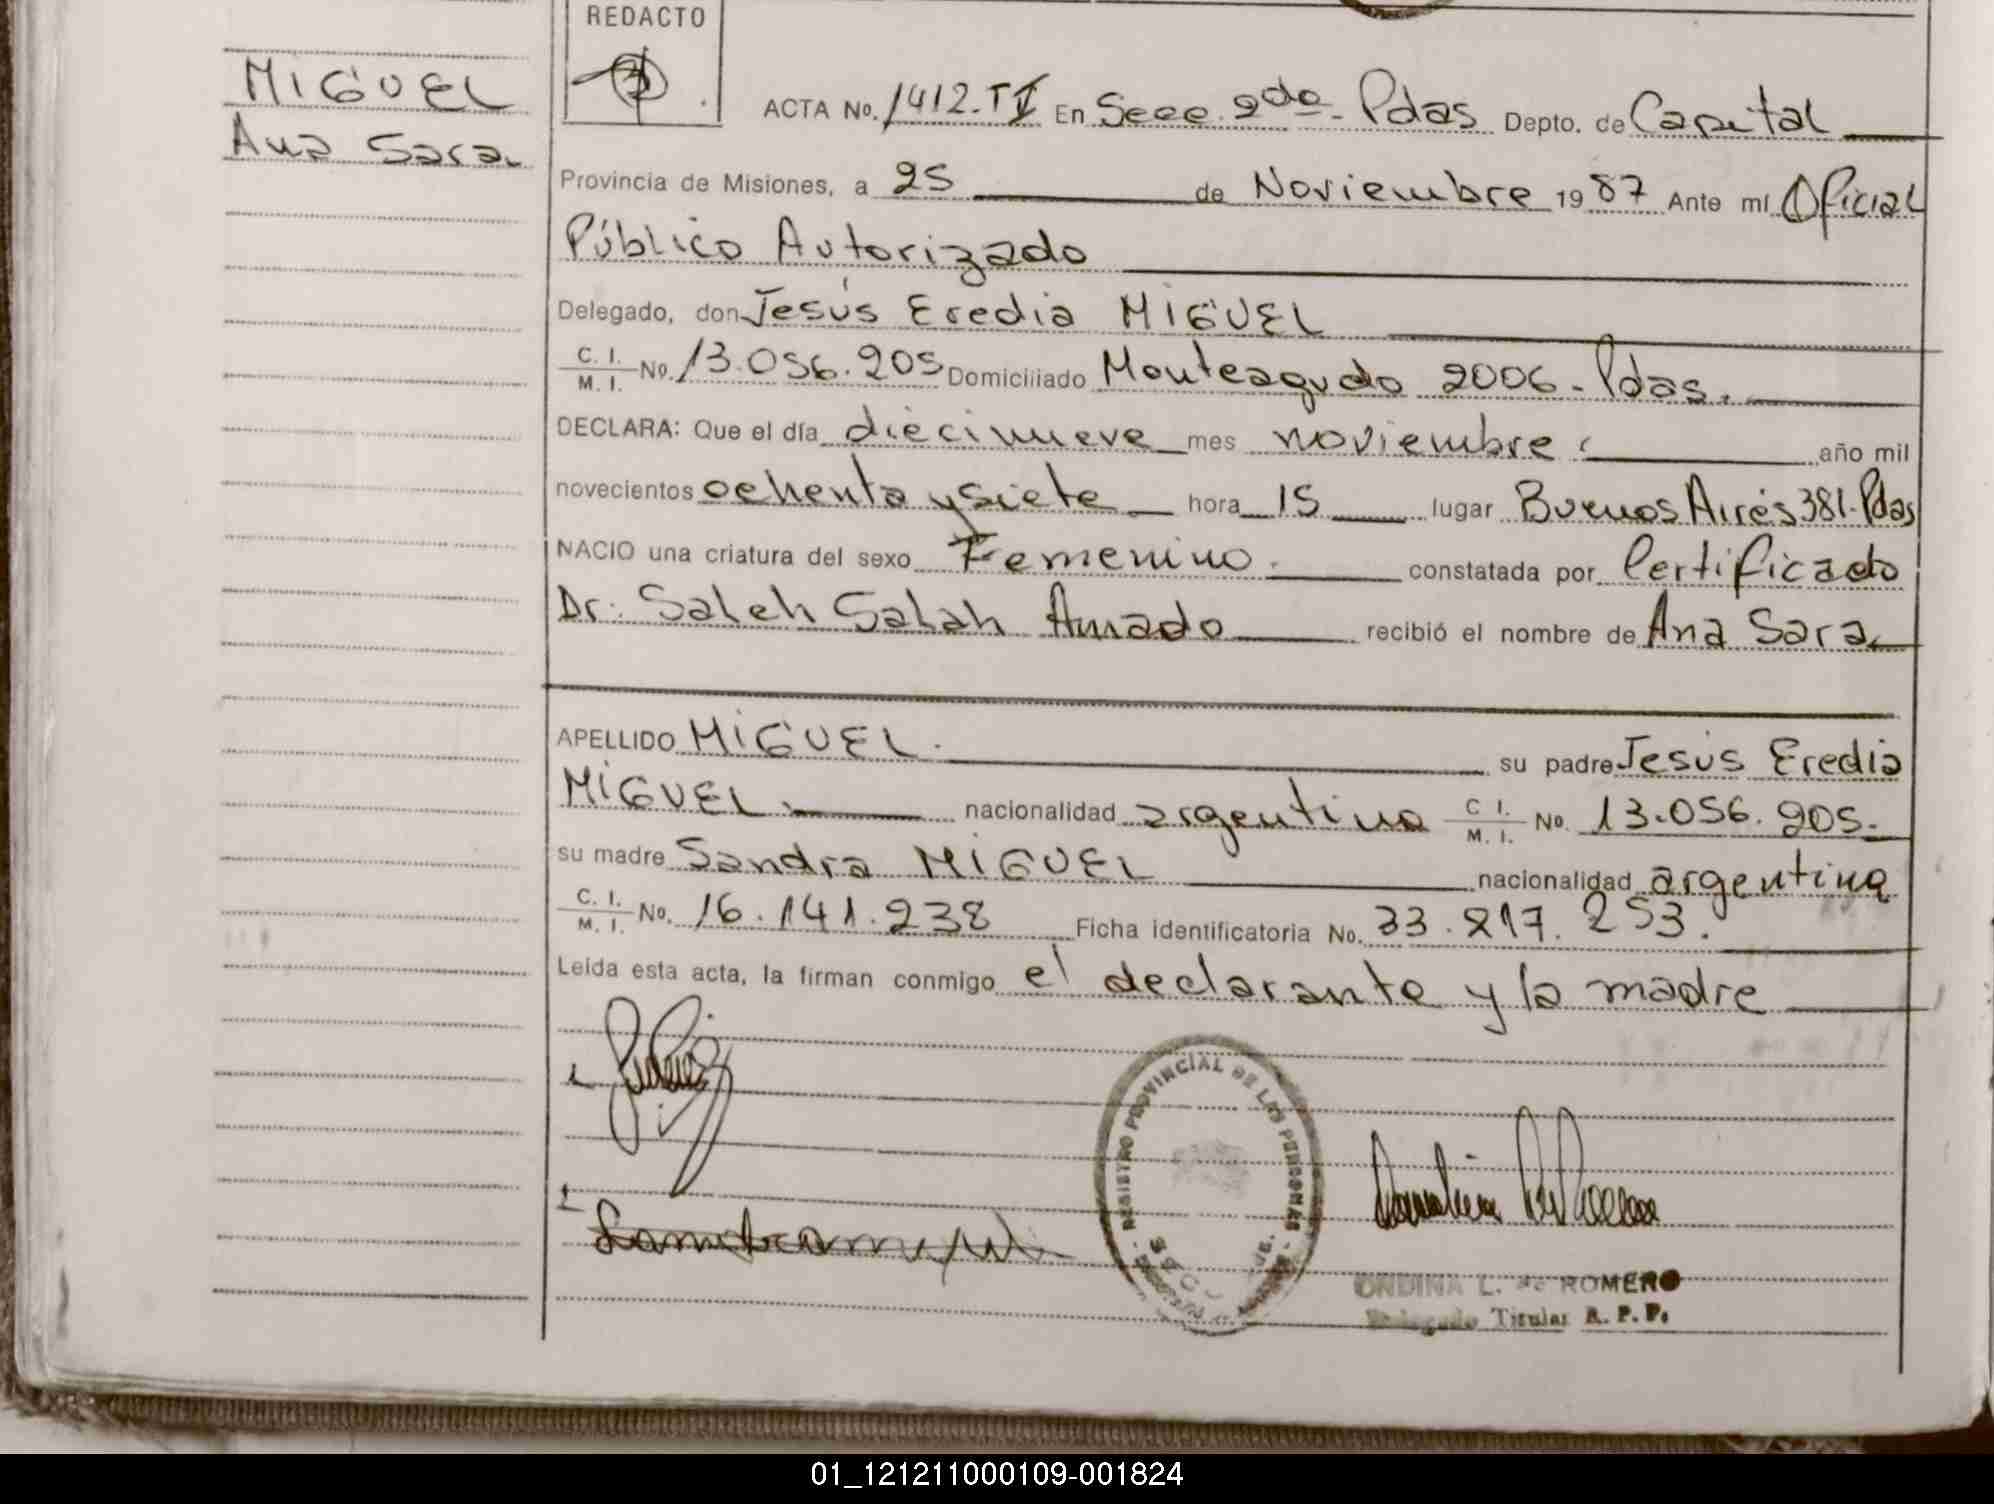 REDACTO
MIGUEL
Ana Sara
ACTA No. 1412. TI En Secc. 2da - Pdas Depto. de Capital
Provincia de Misiones, a 25 de Noviembre 1987 Ante mí Oficial
Público Autorizado
Delegado, don Jesús Eredia MIGUEL
C. I. / M. I. No. 13.056.205 Domiciliado Monteagudo 2006 - Pdas.
DECLARA: Que el día diecinueve mes noviembre año mil
novecientos ochenta y siete hora 15 lugar Buenos Aires 381-Pdas
NACIO una criatura del sexo Femenino. constatada por Certificado
Dr: Saleh Salah Amado recibió el nombre de Ana Sara
APELLIDO MIGUEL. su padre Jesús Eredia
MIGUEL. nacionalidad argentina C I. / M. I. No. 13.056.205.
su madre Sandra MIGUEL nacionalidad argentina
C. I. / M. I. No. 16.141.238 Ficha identificatoria No. 33.217.253.
Leída esta acta, la firman conmigo el declarante y la madre
REGISTRO PROVINCIAL DE LAS PERSONAS
ONDINA L. de ROMERO
Delegado Titular R. P. P.
01_121211000109-001824